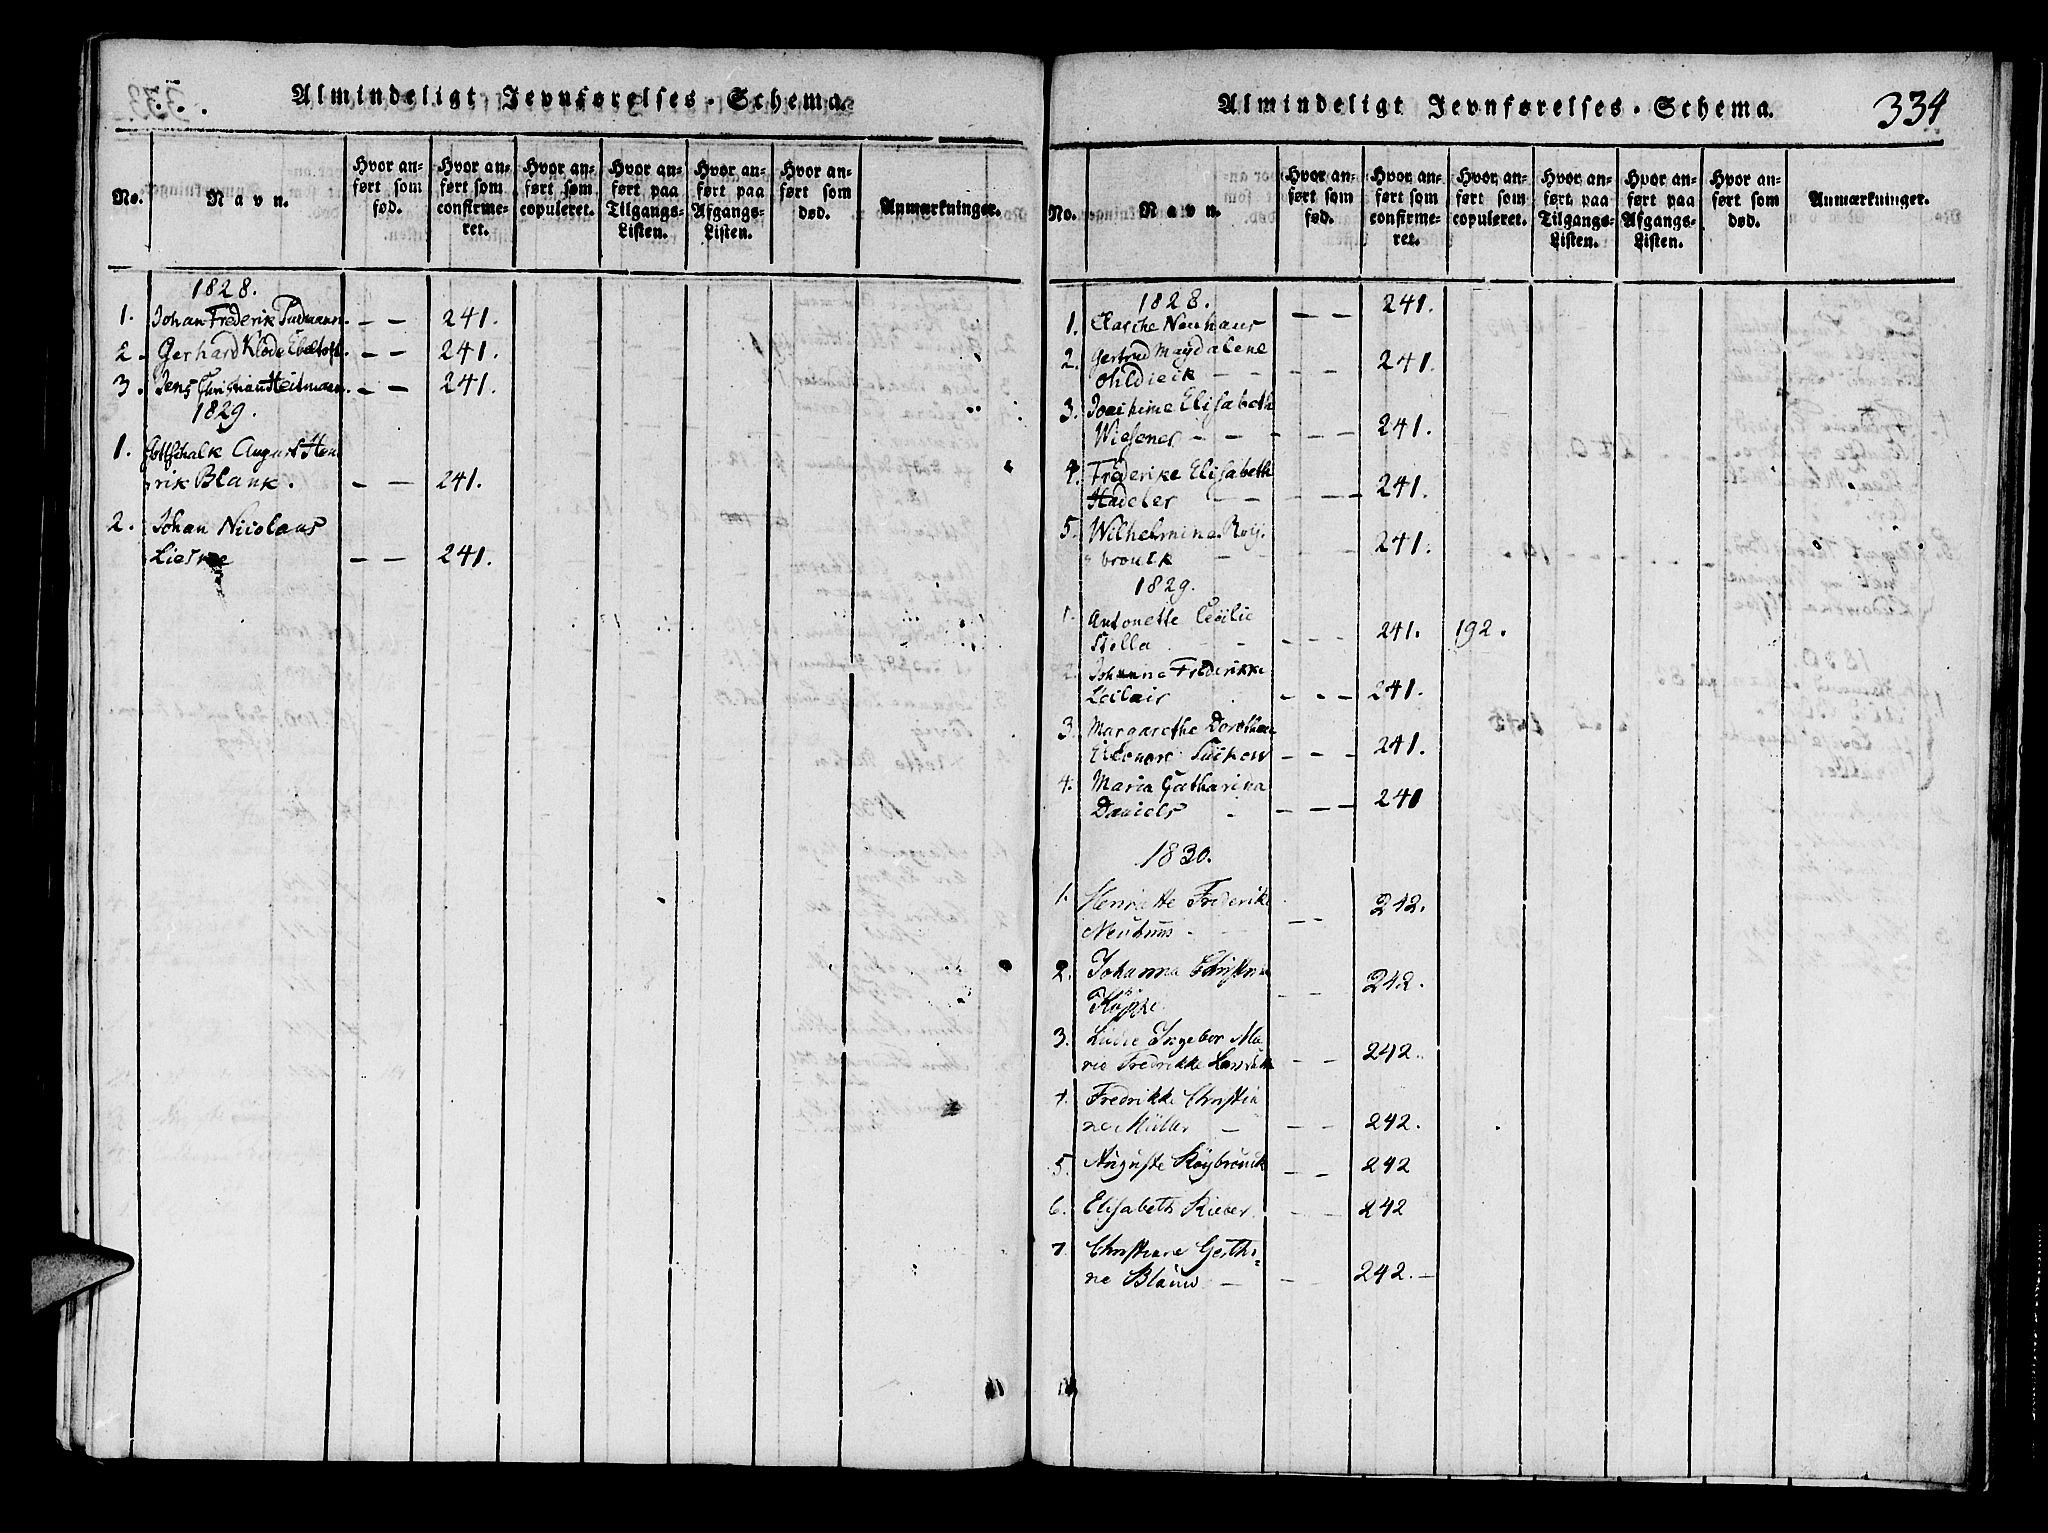 Almindeligt Jevnførelses-Schema.
No.
Navn.
Hvor an-
ført som
fød.
Hvor an-
ført som
confirme-
ret.
Hvor an-
ført som
copuleret.
Hvor an-
ført paa
Tilgangs-
Listen.
Hvor an-
ført paa
Afgangs-
Listen.
Hvor an-
ført som
død.
Anmærkninger.
1828.
1. Johan Frederik - - 241.
2. Gerhard - - 241.
3. Jens Christian Heitmann. - - 241.
1829.
1. Gottschalk August Hen
rik Blank. - - 241.
2. Johan Nicolaus
- - 241.
Almindeligt Jevnførelses-Schema.
334
No.
Navn.
Hvor an-
ført som
fød.
Hvor an-
ført som
confirme-
ret.
Hvor an-
ført som
copuleret.
Hvor an-
ført paa
Tilgangs-
Listen.
Hvor an-
ført paa
Afgangs-
Listen.
Hvor an-
ført som
død.
Anmærkninger.
1828.
1. Neuhaus - - 241.
2. Gertrud Magdalene
Ohldieik - - - - 241.
3. Joachime Elisabeth
Wiesener - - - - - 241.
4. Frederike Elisabeth
Hadeler - - - - - 241.
5. Wilhelmina Roy-
brouck - - 241.
1829.
1. Antonette Cecilie
Stella - - - 241. 192.
2. Johanne Frederikke
Leclair - - - 241.
3. Margarethe Dorothea
Eleonore - - - 241.
4. Maria Catharina
Daniels - - - 241
1830.
1. Henriette Frederike
Neuhaus - - 242.
2. Johanna Christina
- - 242.
3. Ingebor Ma
rie Fredrikke - - 242.
4. Fredrikke Christia
ne Müller - - - 242.
5. Auguste Roybrouck - - 242
6. Elisabeth Rieber - - 242
7 Christiane Gerth-
ne - - 242. -